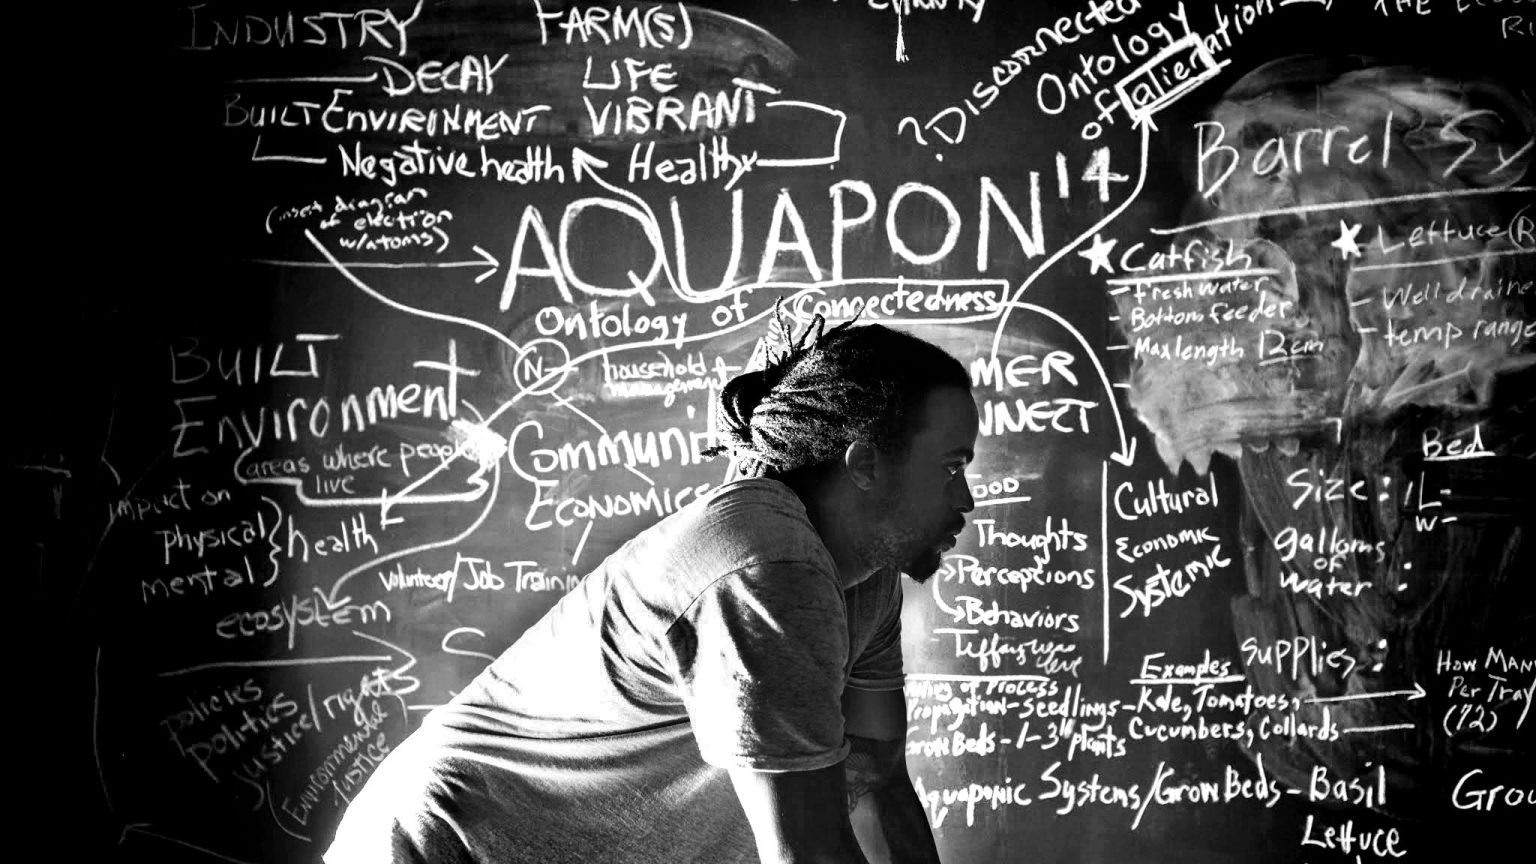 INDUSTRY FARM(S)
DECAY LIFE
BUILT ENVIRONMENT VIBRANT
Negative health Healthy
(insert diagram
of electron
w/atoms)
CHARITY
? Disconnected
Ontology
of alienation
THE
AQUAPON '14
Ontology of Connectedness
N-
household
management
BUILT
Environment
(areas where people
live
impact on
physical
mental
health
ecosystem
policies
politics
justice/rights
(Environmental
Justice
Communi
ECONOMICS
Volunteer/Job Training
S
MER
NNECT
OOD
Thoughts
Perceptions
Behaviors
Tiffany was
of Process
Propagation-seedlings-Kale, Tomatoes,
Cucumbers, Collards
GrowBeds-1-3" plants
Aquaponic Systems/GrowBeds-Basil
Lettuce
Cultural
Economic
Systemic
Barrel Sy
Catfish
- freshwater
- Bottom feeder
- Max length 12cm
-
Lettuce (R
- Well draine
- temp range
Bed
Size: L-
W-
gallons
of
water :
Supplies:
Examples
HOW MAN
Per Tray
(72)
Grou